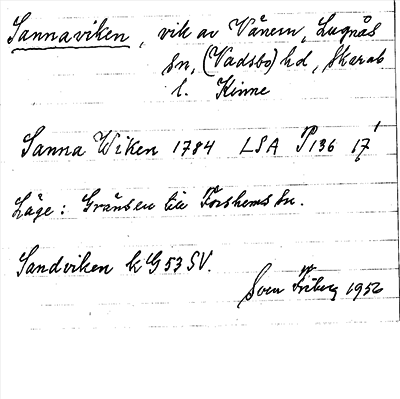 Sannaviken, vik av Vänern, Lugnås
sn, (Vadsbo) hd, Skarab
l. Kinne
Sanna Wiken 1784 LSA P136 17
Läge: Gränsen till Forshems sn.
Sandviken k G53SV.
Sven Friberg 1956